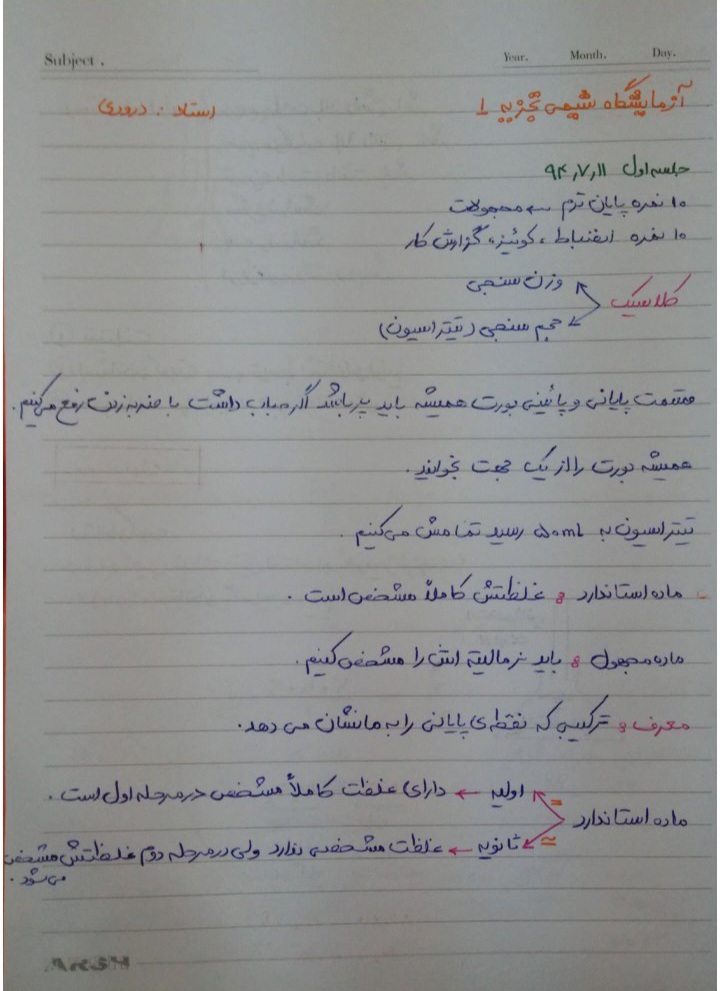 Subject .
Year. Month. Day.
آزمایشگاه شیمی تجزیه 1 استاد : درودی
جلسه اول ۹۴,۷,۱۱
۱۰ نمره پایان ترم ← مجهولات
۱۰ نمره انضباط ، کوئیز، گزارش کار
وزن سنجی
کلاسیک
حجم سنجی (تیتراسیون)
قسمت پایانی و پائینی بورت همیشه باید پر باشد اگر حباب داشت با ضربه زدن رفع می‌کنیم .
همیشه بورت را از یک جهت بخوانید .
تیتراسیون به ۵۰mL رسید تمامش می‌کنیم .
- ماده استاندارد : غلظتش کاملاً مشخص است .
ماده مجهول : باید نرمالیته اش را مشخص کنیم .
معرف : ترکیبی که نقطه‌ی پایانی را به ما نشان می دهد .
اولیه ← دارای غلظت کاملاً مشخص در مرحله اول است .
ماده استاندارد
ثانویه ← غلظت مشخصی ندارد ولی در مرحله دوم غلظتش مشخص
می شود .
ARSH